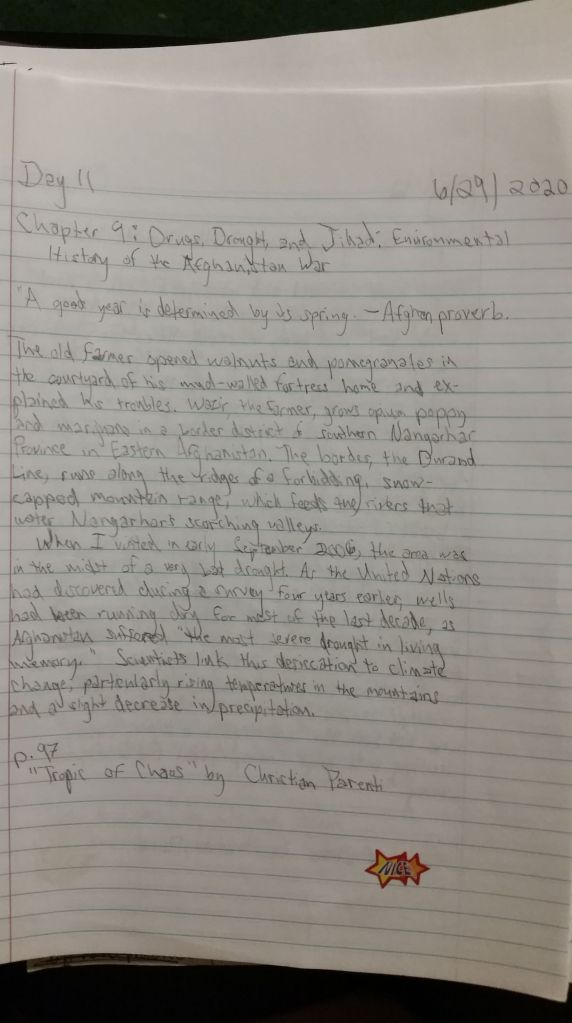 Day 11
6/29/2020
Chapter 9: Drugs, Drought, and Jihad: Environmental
History of the Afghanistan War
"A good year is determined by its spring. - Afghan proverb.
The old farmer opened walnuts and pomegranates in
the courtyard of his mud-walled fortress home and ex-
plained his troubles. Wazir, the farmer, grows opium poppy
and marijuana in a border district of southern Nangarhar
Province in Eastern Afghanistan. The border, the Durand
Line, runs along the ridges of a forbidding, snow-
capped mountain range, which feeds the rivers that
water Nangarhar's scorching valleys.
When I visited in early September 2006, the area was
in the midst of a very bad drought. As the United Nations
had discovered during a survey four years earlier, wells
had been running dry for most of the last decade, as
Afghanistan suffered "the most severe drought in living
memory." Scientists link this desiccation to climate
change, particularly rising temperatures in the mountains
and a slight decrease in precipitation.
p. 97
"Tropic of Chaos" by Christian Parenti
NICE